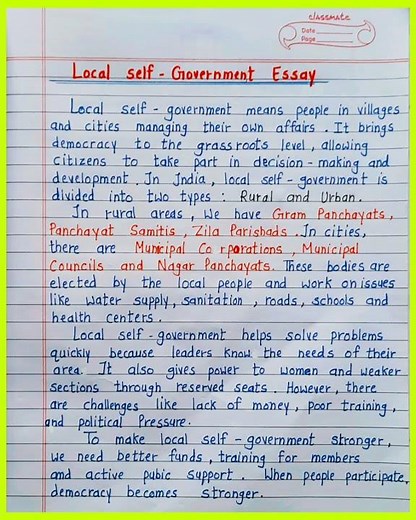 classmate
Date
Page
Local self-Government Essay
Local self-government means people in villages
and cities managing their own affairs. It brings
democracy to the grassroots level, allowing
citizens to take part in decision-making and
development. In India, local self-government is
divided into two types: Rural and Urban.
In rural areas, we have Gram Panchayats,
Panchayat Samitis, Zila Parishads. In cities,
there are Municipal Corporations, Municipal
Councils and Nagar Panchayats. These bodies are
elected by the local people and work on issues
like water supply, sanitation, roads, schools and
health centers.
Local self-government helps solve problems
quickly because leaders know the needs of their
area. It also gives power to women and weaker
sections through reserved seats. However, there
are challenges like lack of money, poor training,
and political Pressure.
To make local self-government stronger,
we need better funds, training for members
and active pubic support. When people participate,
democracy becomes stronger.